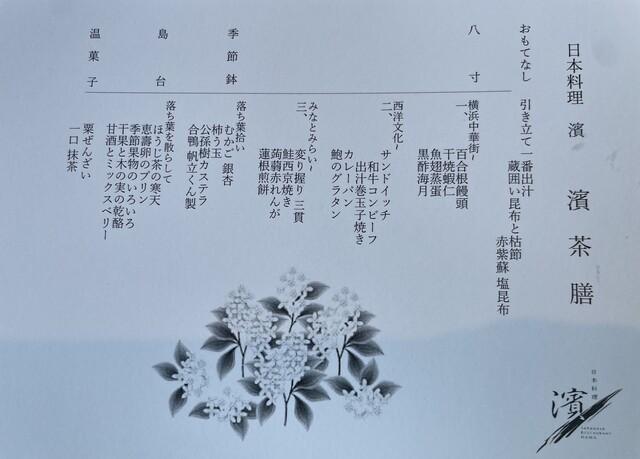 日本料理 濱
濱茶膳
おもてなし 引き立て一番出汁
蔵囲い昆布と枯節
赤紫蘇 塩昆布
八寸
一、横浜中華街~
百合根饅頭
干焼蝦仁
魚翅蒸蛋
黒酢海月
二、西洋文化~
サンドイッチ
和牛コンビーフ
出汁巻玉子焼き
カレーパン
鮑のグラタン
三、みなとみらい~
変り握り 三貫
鮭西京焼き
蒟蒻赤れんが
蓮根煎餅
季節鉢
落ち葉拾い
むかご 銀杏
柿う玉
公孫樹カステラ
合鴨 帆立くん製
島台
落ち葉を散らして
ほうじ茶の寒天
恵壽卵のプリン
季節果物のいろいろ
干果と木の実の乾酪
甘酒とミックスベリー
温菓子
粟ぜんざい
一口抹茶
日本料理
濱
Japanese
Restaurant
HAMA